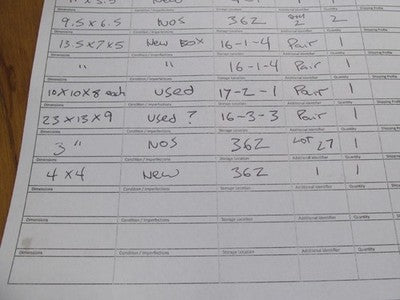 New
9.5 x 6.5 NOS 362 2 2
Dimensions Condition / Imperfections Storage Location Additional Identifier Quantity Shipping Profile
13.5 x 7 x 5 New Box 16-1-4 Pair
Dimensions Condition / Imperfections Storage Location Additional Identifier Quantity Shipping Profile
" " 16-1-4 Pair 1
Dimensions Condition / Imperfections Storage Location Additional Identifier Quantity Shipping Profile
10 x 10 x 8 each Used 17-2-1 Pair 1
Dimensions Condition / Imperfections Storage Location Additional Identifier Quantity Shipping Profile
23 x 13 x 9 Used ? 16-3-3 Pair 1
Dimensions Condition / Imperfections Storage Location Additional Identifier Quantity Shipping
3 " NOS 362 LOT 27 1
Dimensions Condition / Imperfections Storage Location Additional Identifier Quantity
4 x 4 New 362 1 1
Dimensions Condition / Imperfections Storage Location Additional Identifier Quantity
Dimensions Condition / Imperfections Storage Location Additional Identifier Quantity
Dimensions Condition / Imperfections Storage Location Additional Identifier Quantity